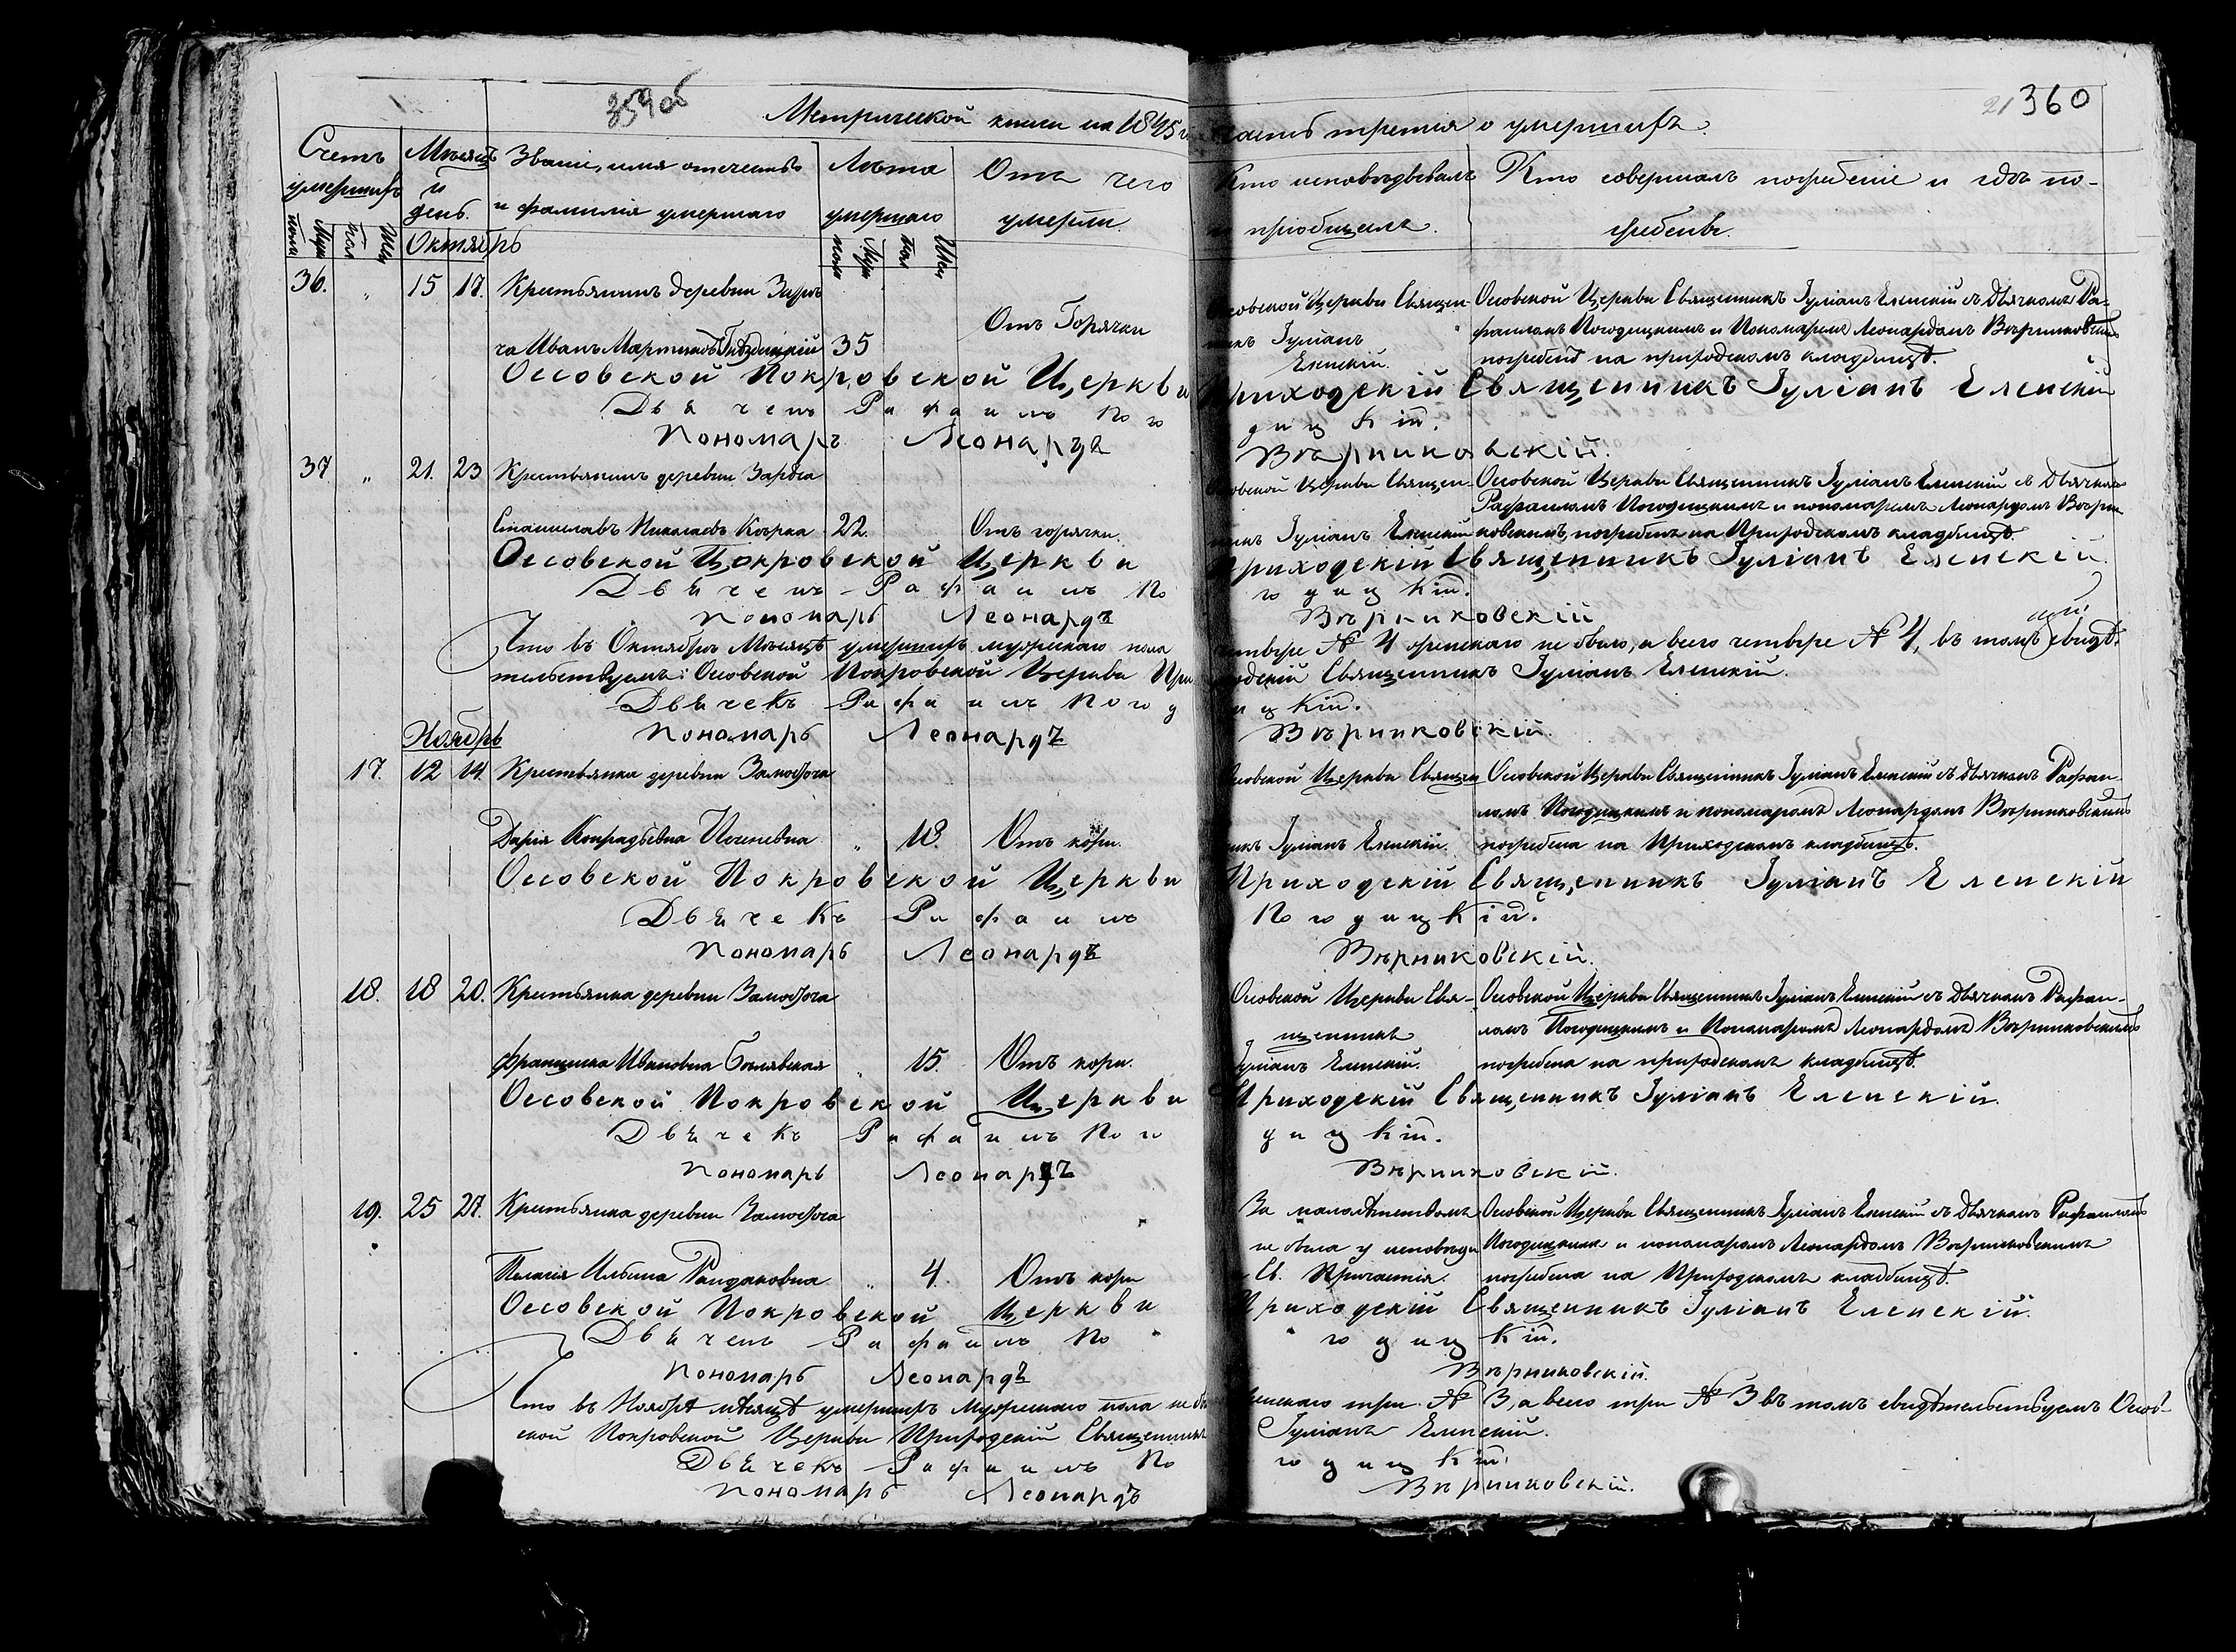 359об
360
Метрической книги на 1845 г часть третія о умершихъ.
Счетъ умершихъ
Мѣсяцъ и день.
Званіе, имя отечество и фамилія умершаго
Лѣта умершаго
Отъ чего умерли.
Кто исповѣдывалъ и пріобщалъ.
Кто совершалъ погребеніе и гдѣ погребенъ.
Октябрь
36. " 15 17. Крестьянинъ деревни Зарѣ
ча Иванъ Мартиновъ 35
Отъ Горячки
Осовской Церкви Священ
никъ Іуліанъ
Еленскій.
Осовской Церкви Священникъ Іуліанъ Еленскій съ Дьячкомъ Ра-
фаиломъ Погодицкимъ и Пономаремъ Леонардомъ Вѣрниковскимъ
погребенъ на приходскомъ кладбищѣ.
Оссовской Покровской Церкви Приходскій Священникъ Іуліанъ Еленскій
Дьячекъ Рафаилъ Погодицкій.
Пономарь Леонардъ Вѣрниковскій.
37 " 21. 23 Крестьянинъ деревни Зарѣча
Станиславъ Николаевъ 22.
Отъ горячки.
Осовской Церкви Священ-
никъ Іуліанъ Еленскій
Осовской Церкви Священникъ Іуліанъ Еленскій съ Дьячкомъ
Рафаиломъ Погодицкимъ и пономаремъ Леонардомъ Вѣрни
ковскимъ, погребенъ на Приходскомъ кладбищѣ.
Оссовской Покровской Церкви Приходскій Священникъ Іуліанъ Еленскій.
Дьячекъ Рафаилъ Погодицкій.
Пономарь Леонардъ Вѣрниковскій
Что въ Октябрѣ Мѣсяцѣ умершихъ мужескаго пола четыре № 4 женскаго не было, а всего четыре № 4, въ томъ свидѣ
тельствуемъ: Осовской Покровской Церкви Приходскій Священникъ Іуліанъ Еленскій.
Дьячекъ Рафаилъ Погодицкій.
Пономарь Леонардъ Вѣрниковскій.
Ноябрь
17. 12 14. Крестьянка деревни Замосточа
Дарія Кондратьевна " 18. Отъ кори.
Осовской Церкви Священ
никъ Іуліанъ Еленскій.
Осовской Церкви Священникъ Іуліанъ Еленскій съ Дьячкомъ Рафаи-
ломъ Погодицкимъ и пономаромъ Леонардомъ Вѣрниковскимъ
погребена на Приходскомъ кладбищѣ.
Оссовской Покровской Церкви Приходскій Священникъ Іуліанъ Еленскій
Дьячекъ Рафаилъ Погодицкій.
Пономарь Леонардъ Вѣрниковскій.
18. 18 20. Крестьянка деревни Замосточа
Франциска Ивановна " 15. Отъ кори.
Осовской Церкви Свя-
щенникъ
Іуліанъ Еленскій.
Осовской Церкви Священникъ Іуліанъ Еленскій съ Дьячкомъ Рафаи-
ломъ Погодицкимъ и Пономаромъ Леонардомъ Вѣрниковскимъ
погребена на приходскомъ кладбищѣ.
Оссовской Покровской Церкви Приходскій Священникъ Іуліанъ Еленскій.
Дьячекъ Рафаилъ Погодицкій.
Пономарь Леонардъ Вѣрниковскій.
19. 25 27. Крестьянка деревни Замосточа
Пелагія Ильина " 4. Отъ кори
За малолѣтствомъ
не была у исповѣди
Св. Причастія.
Осовской Церкви Священникъ Іуліанъ Еленскій съ Дьячкомъ Рафаиломъ
Погодицкимъ и пономаромъ Леонардомъ Вѣрниковскимъ
погребена на Приходскомъ кладбищѣ.
Оссовской Покровской Церкви Приходскій Священникъ Іуліанъ Еленскій.
Дьячекъ Рафаилъ Погодицкій.
Пономарь Леонардъ Вѣрниковскій.
Что въ Ноябрѣ мѣсяцѣ умершихъ Мужескаго пола не бы женскаго три № 3, а всего три № 3 въ томъ свидѣтельствуемъ Осов-
ской Покровской Церкви Приходскій Священникъ Іуліанъ Еленскій.
Дьячекъ Рафаилъ Погодицкій.
Пономарь Леонардъ Вѣрниковскій.